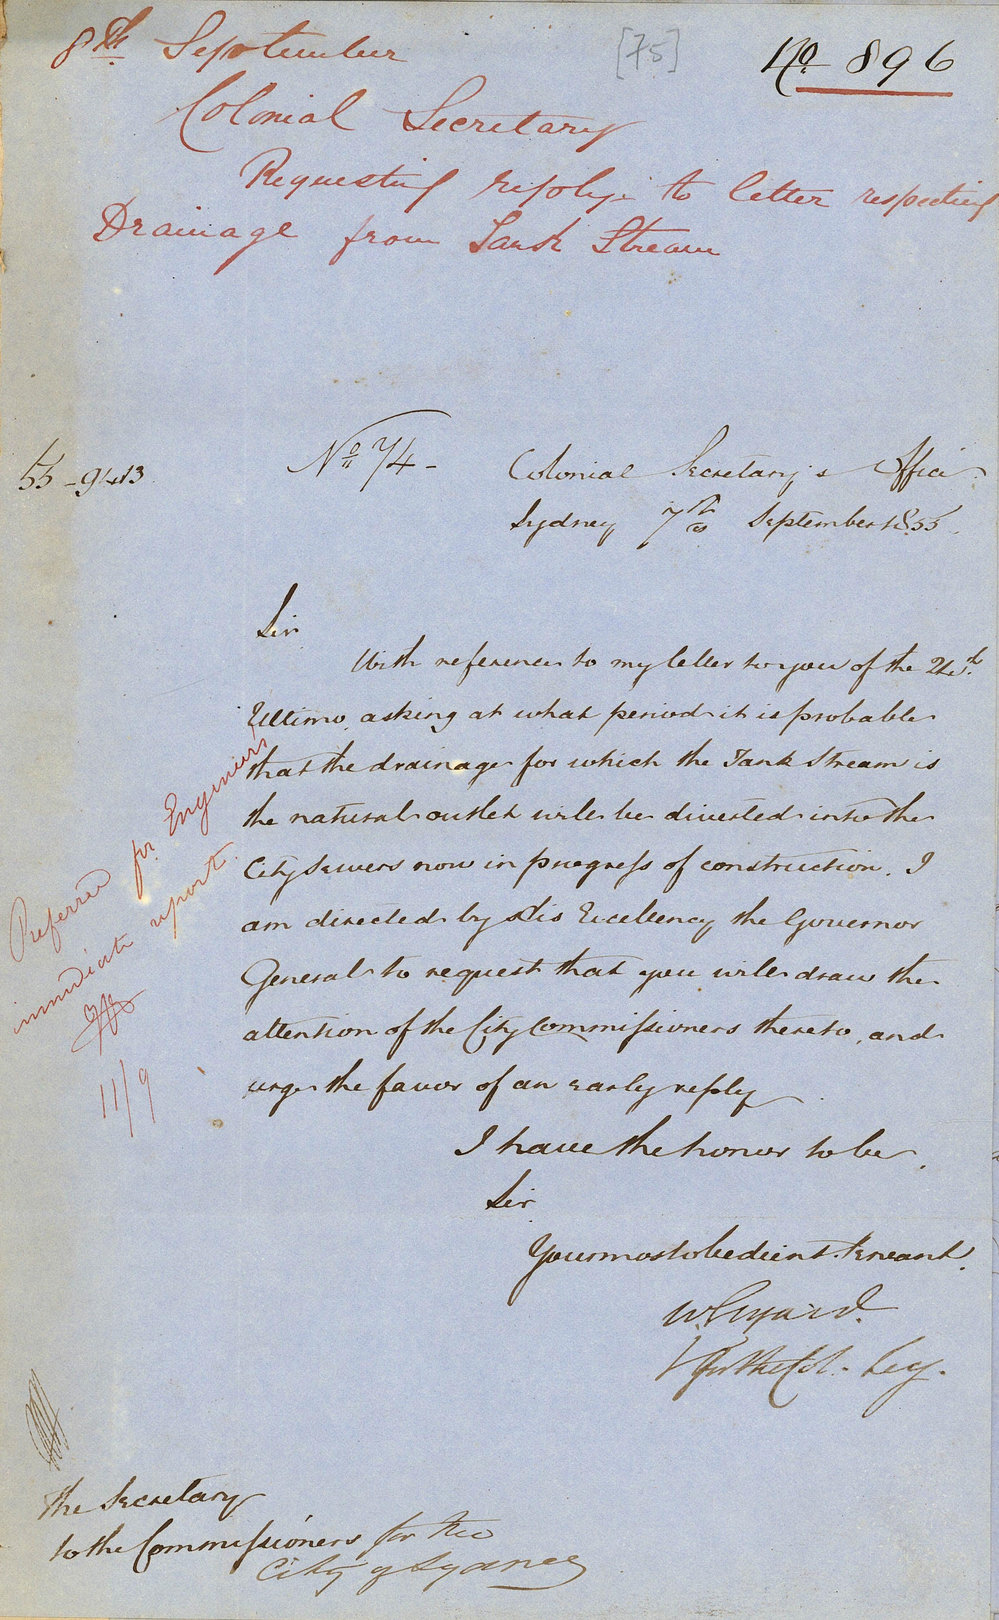 8th September
[75]
No 896
Colonial Secretary
Requesting reply to letter respecting
Drainage from Tank Stream
55-9413
No 74-
Colonial Secretary's Office
Sydney 7th September 1855
Sir
With reference to my letter to you of the 24th
Ultimo, asking at what period it is probable
that the drainage for which the Tank Stream is
the natural outlet will be diverted into the
City Sewers now in progress of construction. I
am directed by His Excellency the Governor
General to request that you will draw the
attention of the City Commissioners thereto, and
urge the favor of an early reply
Referred for Engineers
immediate report.
11/9
I have the honor to be,
Sir
Your most obedient Servant.
W Elyard
For the Col. Secy.
The Secretary
to the Commissioners for the
City of Sydney